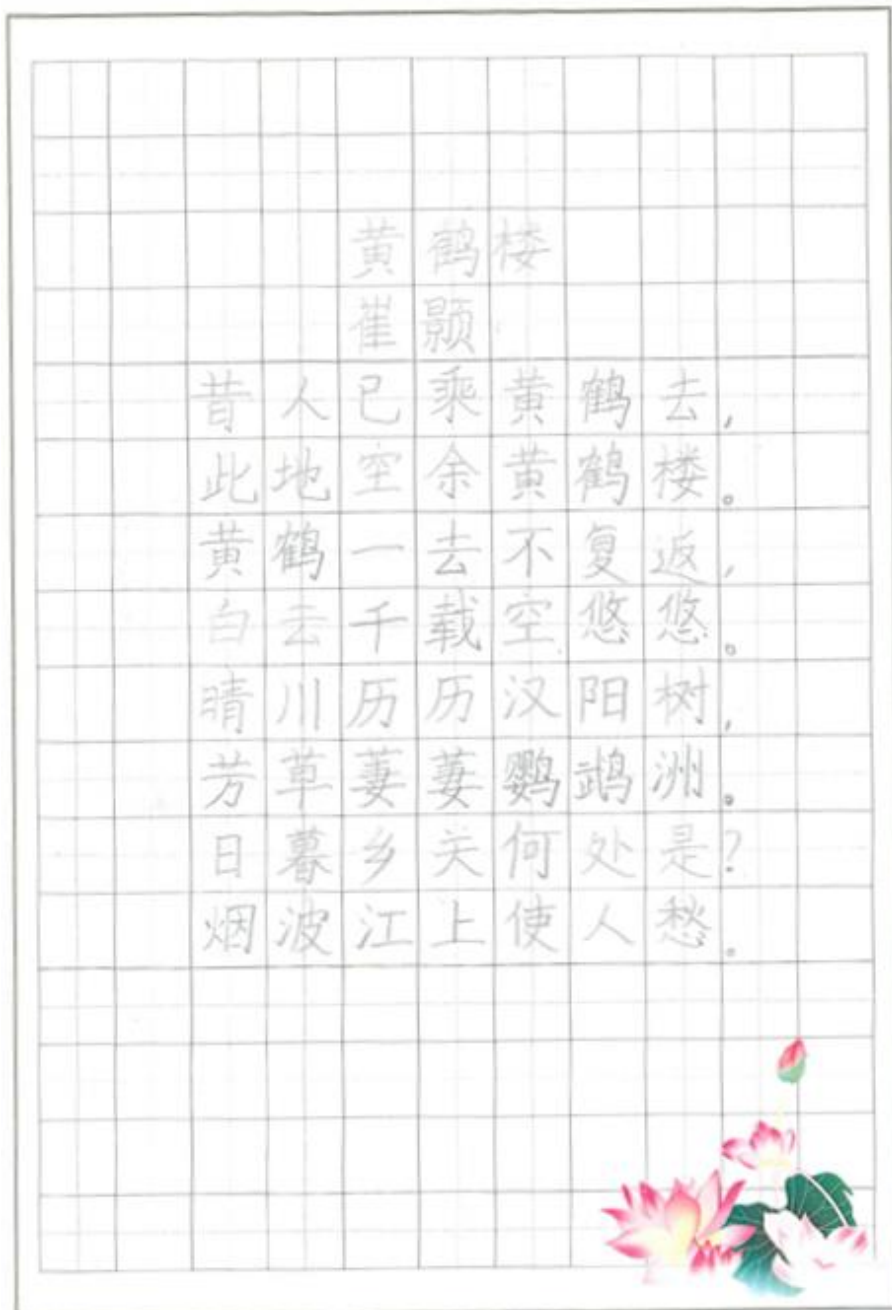 黄鹤楼
崔颢
昔人已乘黄鹤去，
此地空余黄鹤楼。
黄鹤一去不复返，
白云千载空悠悠。
晴川历历汉阳树，
芳草萋萋鹦鹉洲。
日暮乡关何处是？
烟波江上使人愁。